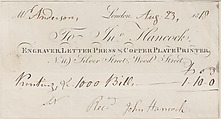 Mr Anderson, London Aug 23, 1810
To Jno. Hancock,
Engraver, Letter Press & Copper Plate Printer,
Silver Street, Wood Street.
Printing & 1000 Bills 1.10.0
Recd. John Hancock